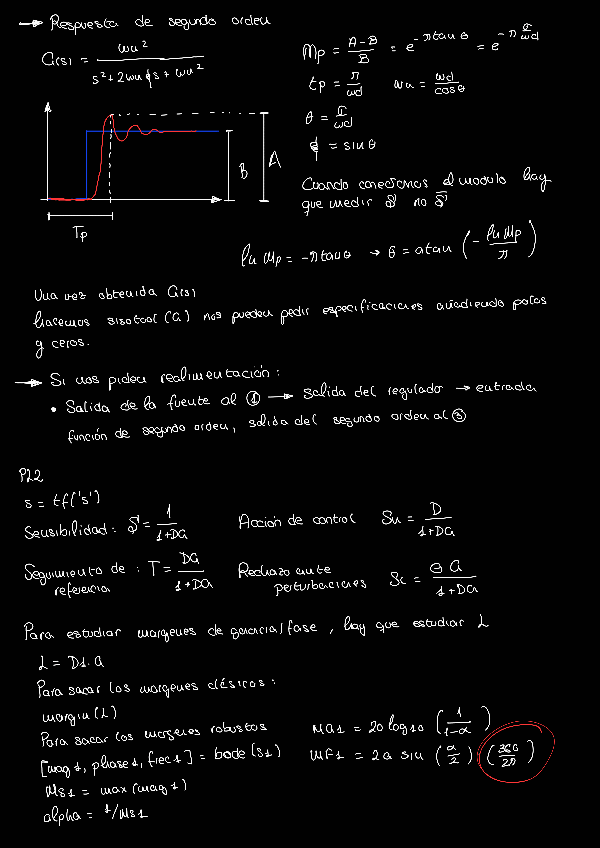 → Respuesta de segundo orden
G(s) = ωn² / (s² + 2ωnϕs + ωn²)
Mp = (A-B)/B = e^(-π tanθ) = e^(-π σ/ωd)
tp = π/ωd   ωn = ωd/cosθ
θ = π/ωd
ϕ = sinθ
B
A
Tp
Cuando conectemos el modulo hay
que medir
no
ln Mp = -π tanθ → θ = atan(-ln Mp/π)
Una vez obtenida G(s)
hacemos sisotool(G) nos pueden pedir especificaciones añadiendo polos
y ceros.
→ Si nos piden realimentación:
• Salida de la fuente al ① → salida del regulador → entrada
función de segundo orden, salida del segundo orden al ③
PL2
s = tf('s')
Sensibilidad: S = 1/(1+DG)   Acción de control   Su = D/(1+DG)
Seguimiento de referencia: T = DG/(1+DG)   Rechazo ante perturbaciones   Sc = G/(1+DG)
Para estudiar margenes de ganancia/fase, hay que estudiar L
L = D1·G
Para sacar los margenes clásicos:
margin(L)
Para sacar los margenes robustos
[mag1, phase1, frec1] = bode(S1)
Ms1 = max(mag1)
alpha = 1/Ms1
MG1 = 20log10(1/(1-α))
MF1 = 2a sin(α/2)(360/2π)